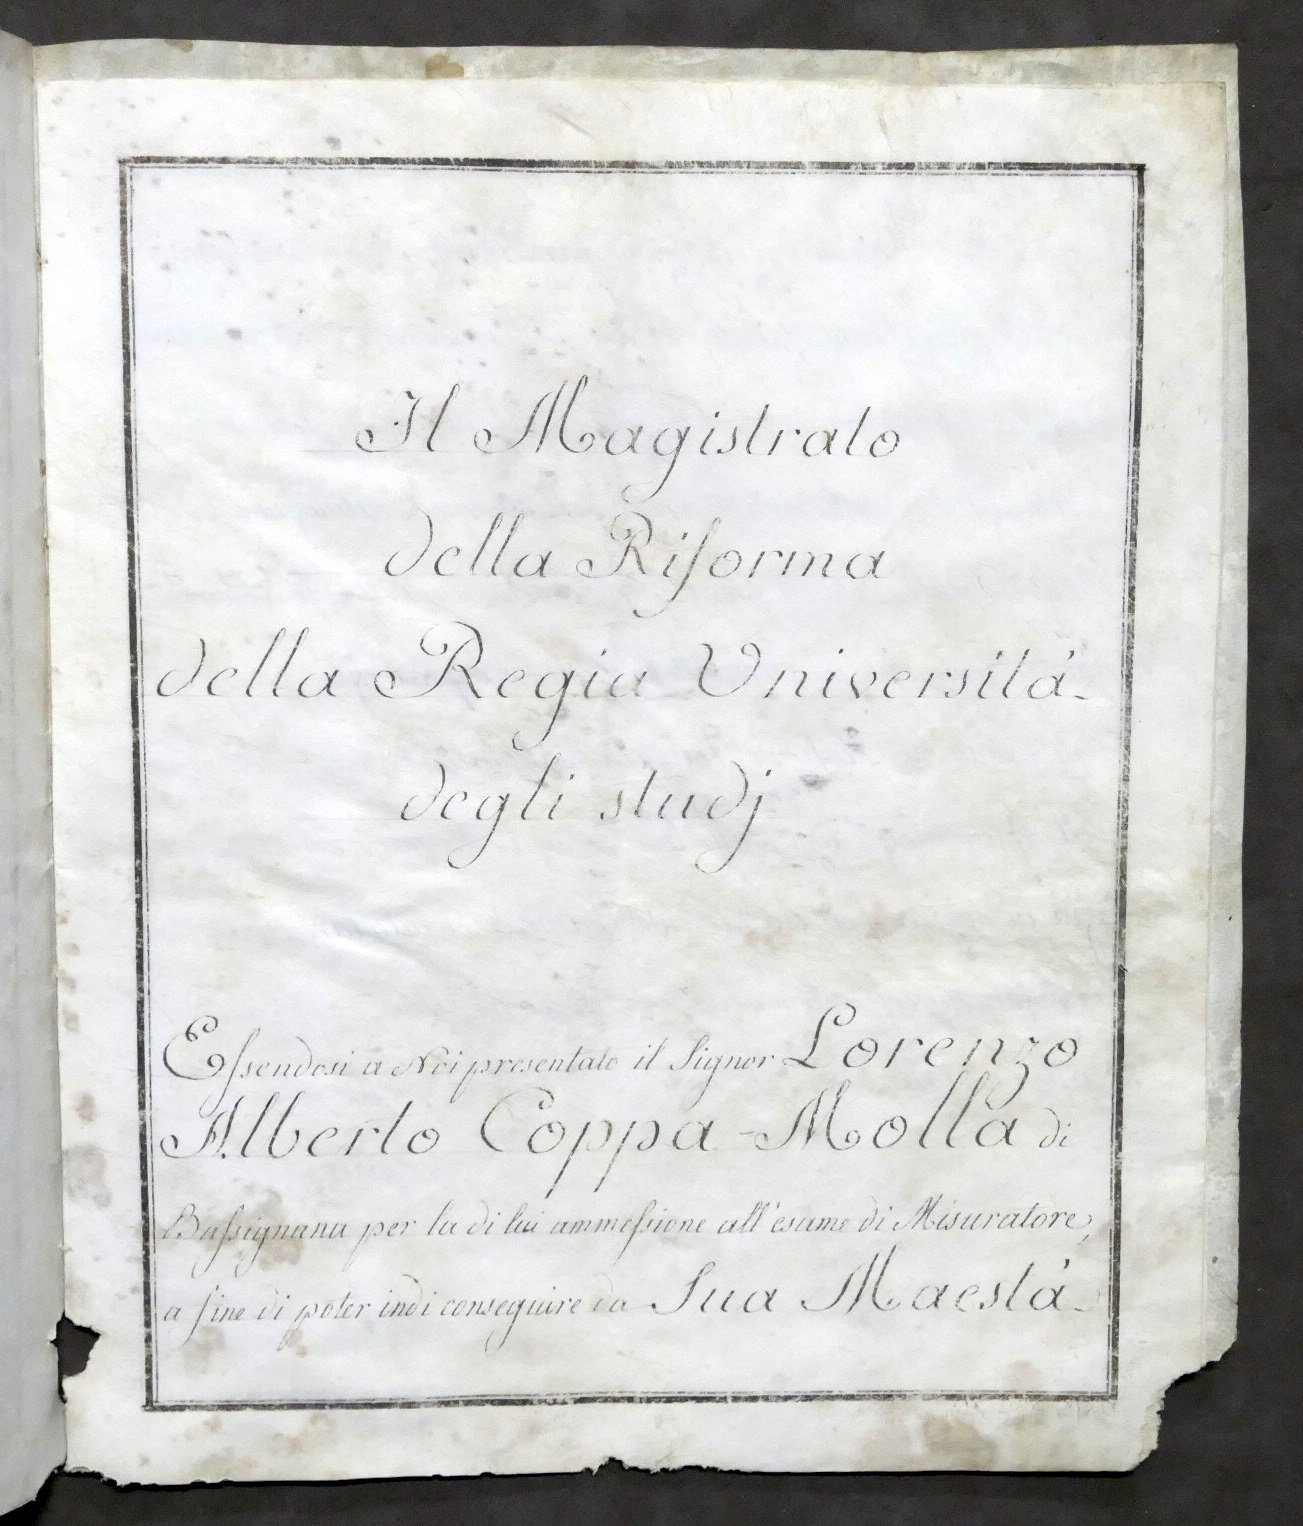 Il Magistrato
della Riforma
della Regia Università
degli studj
Essendosi a Noi presentato il Signor Lorenzo
Alberto Coppa-Molla di
Bassignana per la di lui ammessione all'esame di Misuratore,
a fine di poter indi conseguire da Sua Maestà